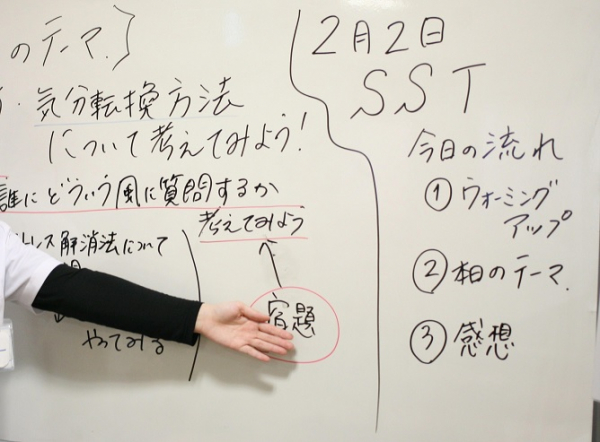 のテーマ〕
・気分転換方法
について考えてみよう!
誰にどういう風に質問するか
考えてみよう
トレス解消法について
やってみる
宿題
2月2日
SST
今日の流れ
① ウォーミング
アップ
② 本日のテーマ.
③ 感想